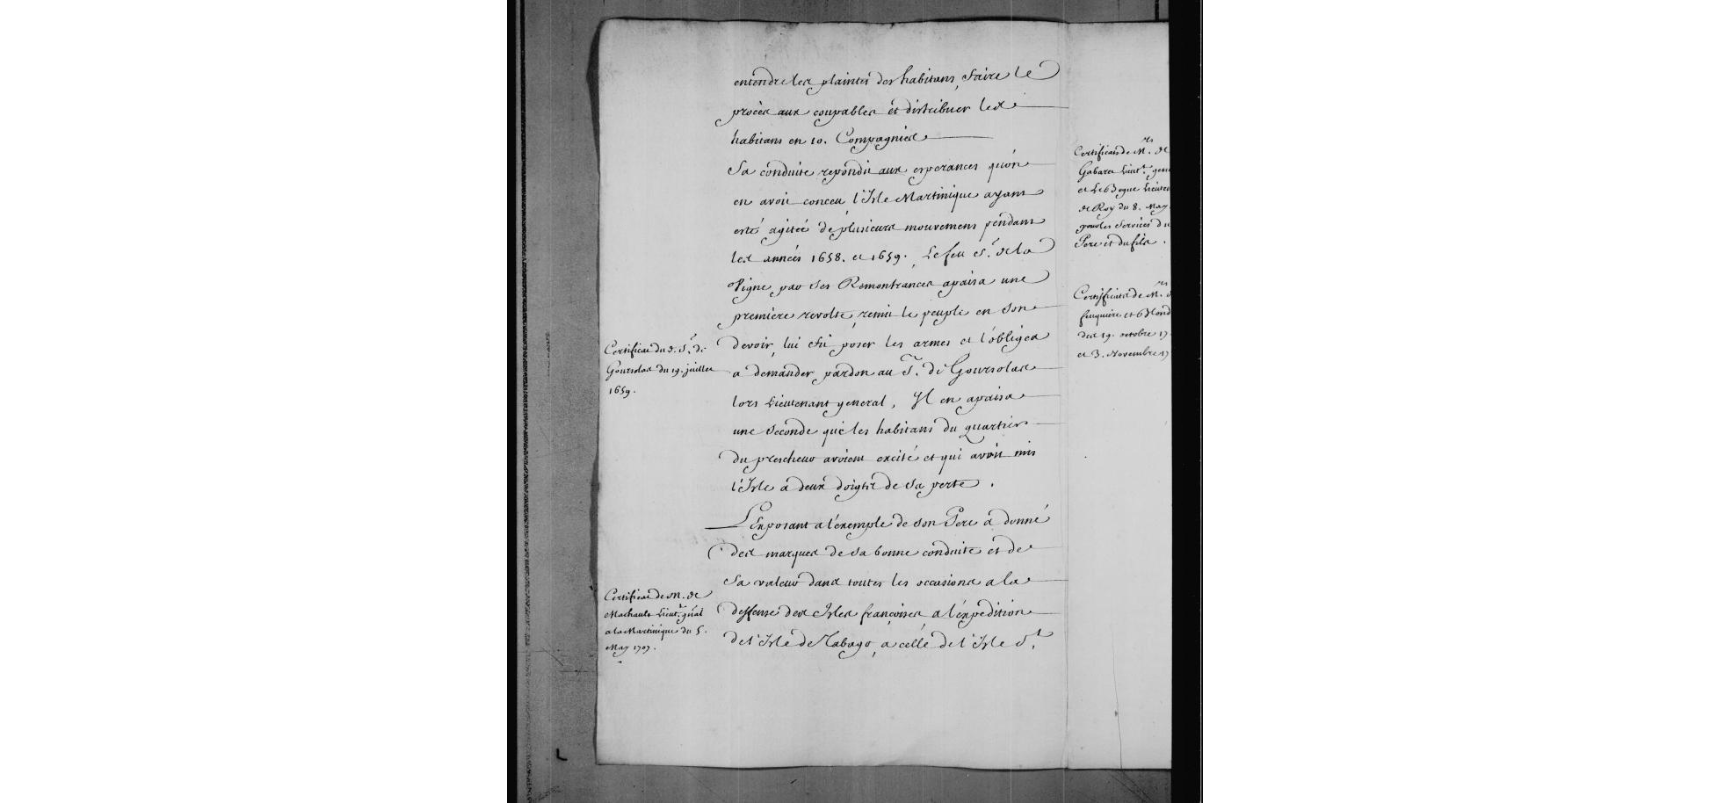 entendre les plaintes des habitans, faire le
procès aux coupables et distribuer les
habitans en 10. Compagnies
Sa conduite repondit aux esperances qu'on
en avoit conceu, l'Isle Martinique ayant
esté agitée de plusieurs mouvemens pendant
les années 1658. et 1659. Le feu Sr. de la
Vigne par ses Remontrances apaisa une
premiere revolte, remit le peuple en son
devoir, lui fit poser les armes et l'obligea
a demander pardon au Sr. de Goursolas
lors Lieutenant general, Il en apaisa
une seconde que les habitans du quartier
du prescheur avoient excité et qui avoit mis
l'Isle a deux doigts de sa perte.
L'Exposant a l'exemple de son Pere a donné
des marques de sa bonne conduite et de
sa valeur dans toutes les occasions a la
deffense des Isles françoises a l'expedition
de l'Isle de Tabago, a celle de l'Isle St.
Certificat du d. Sr. de
Goursolas du 19. juillet
1659.
Certificat de M. de
Machault Lieutt. gñal
a la Martinique du 5.
May 1707.
Certificat de Mrs. de
Gabaret Lieutt. gen
et Le Begue Lieuten
de Roy du 8. May
pour les services du
Pere et du fils.
Certificats de Mrs. d
feuquiere et
des 19. octobre 17
et 3. Novembre 17